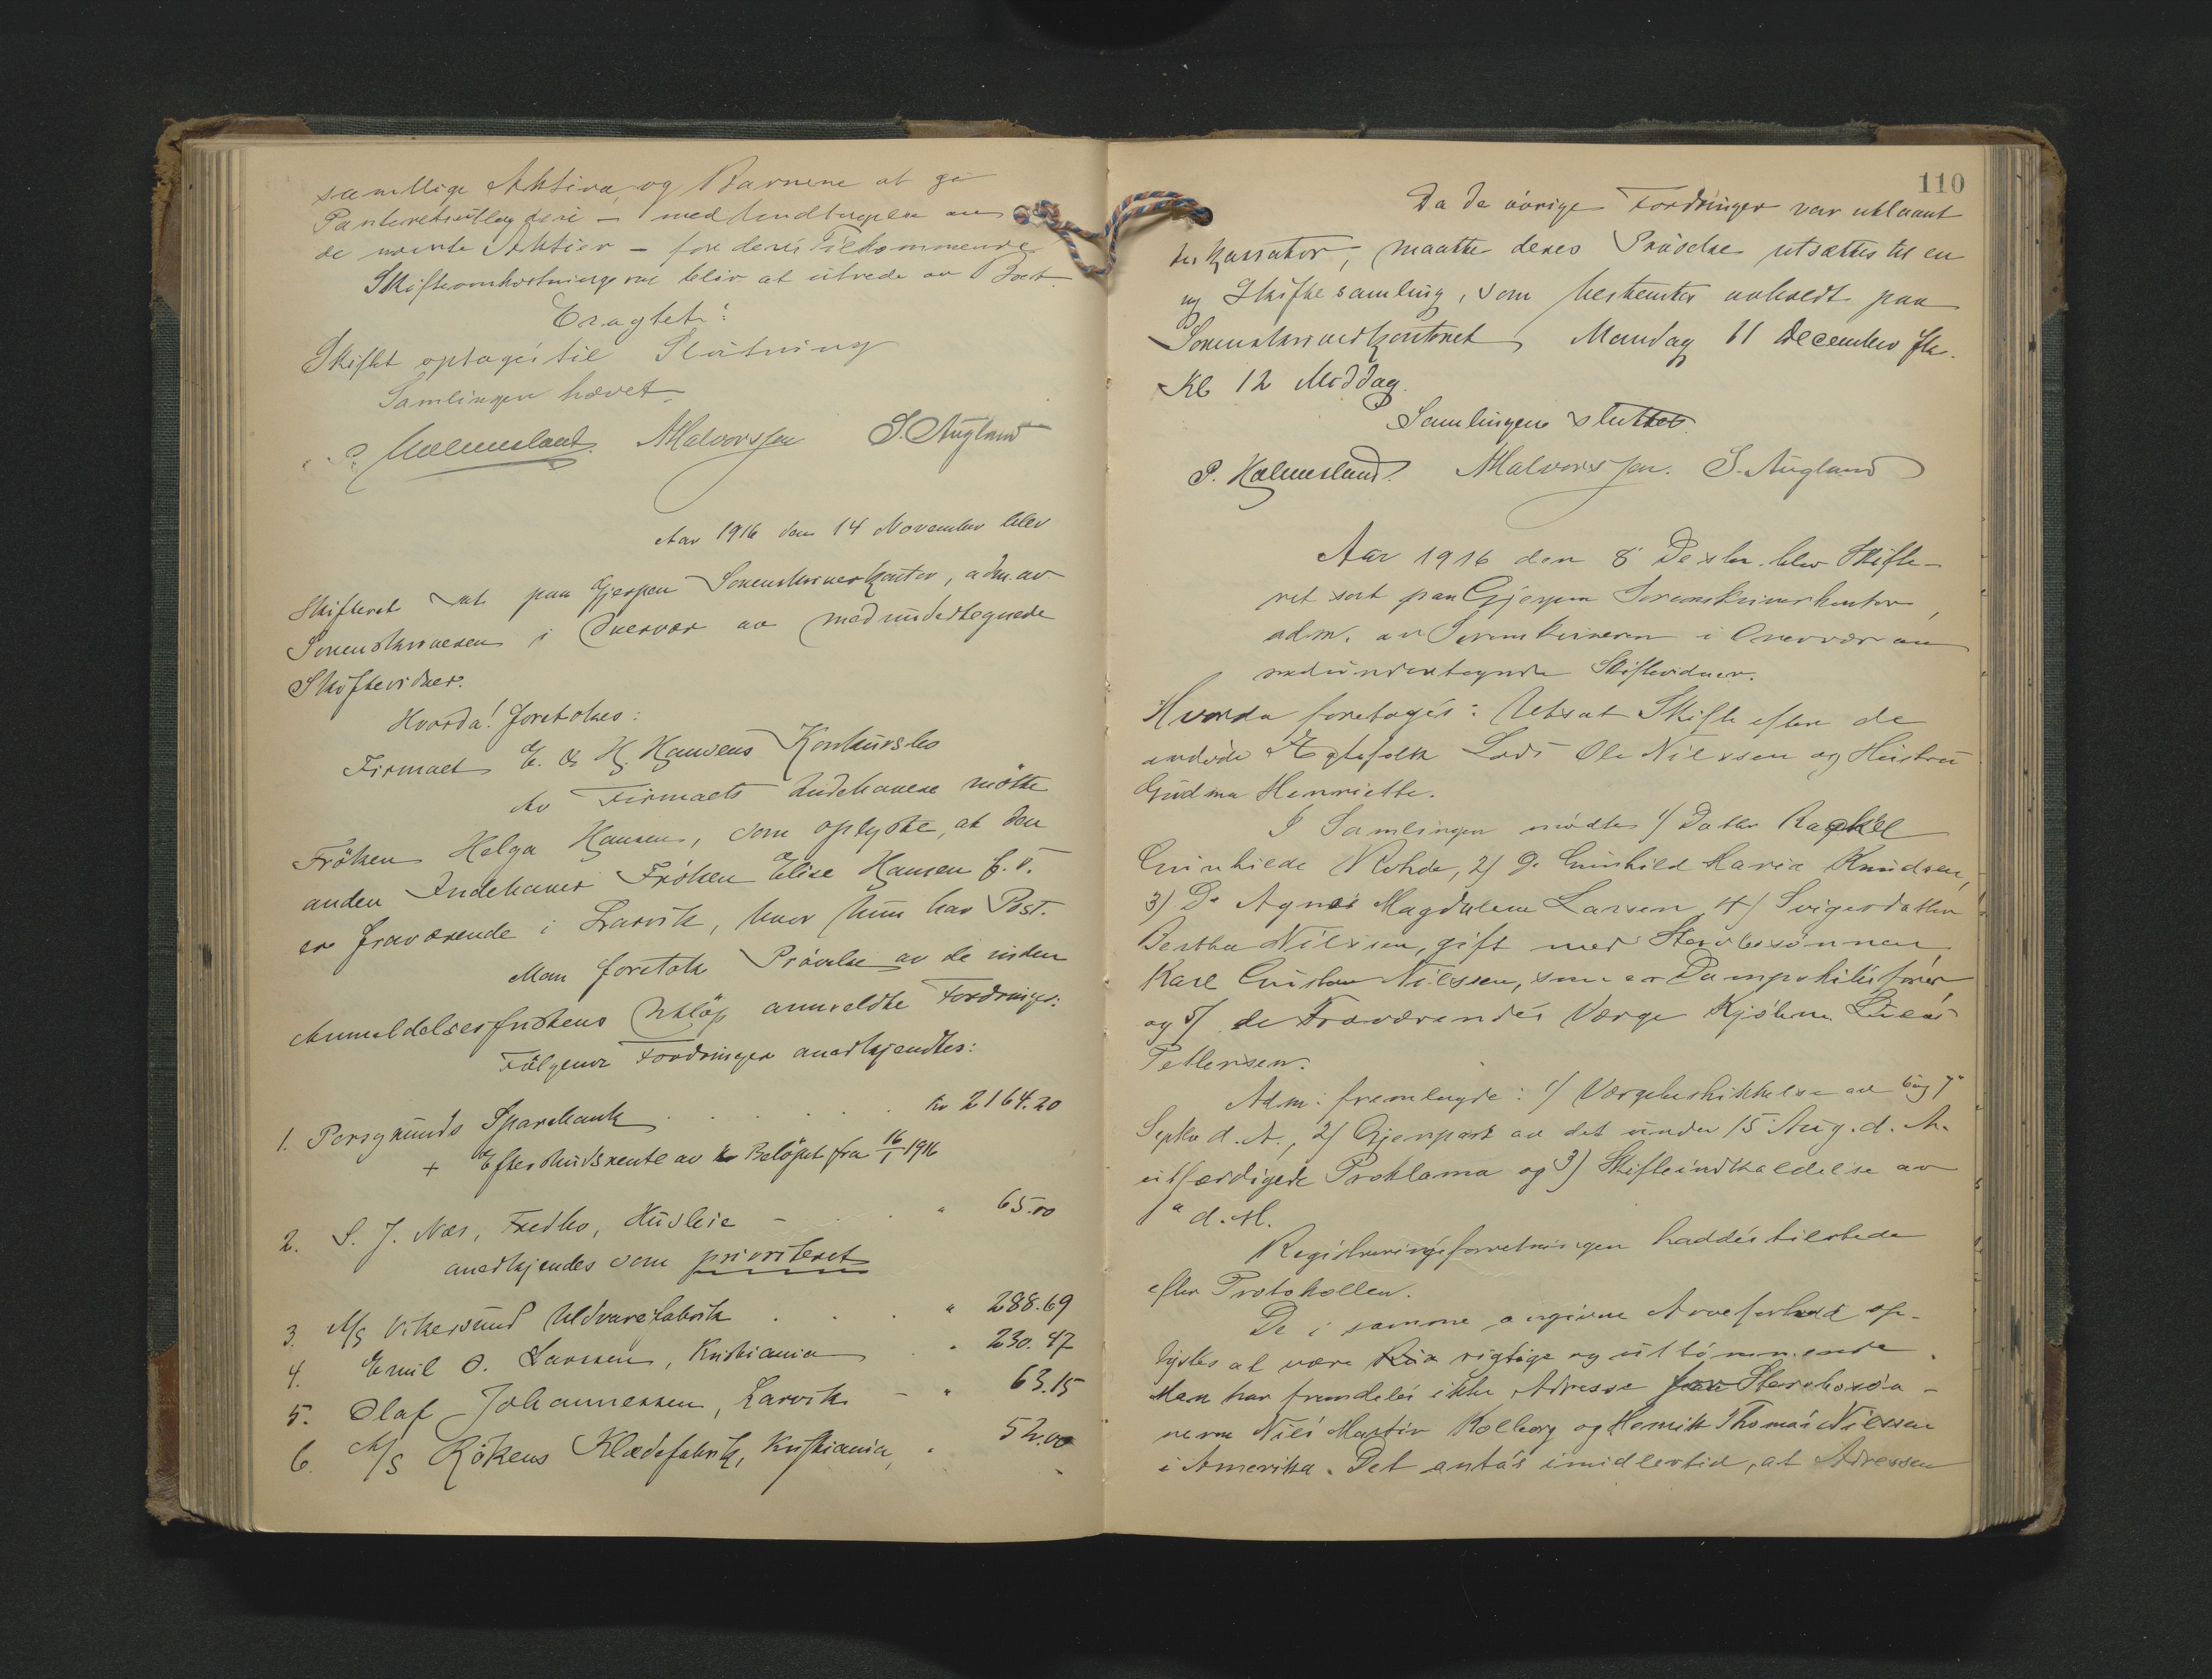 samtlige Aktiva, og Barnene at gi
Panteretsutlæg deri – med Undtagelse av
de nævnte Aktier – for deres Tilkommende.
Skifteomkostningerne blir at utrede av Boet.
Eragtet:
Skiftet optages til Slutning
Samlingen hævet.
P. Holmesland. A Halvorssen S. Augland
Aar 1916 den 14 November blev
Skifteret sat paa Gjerpen Sorenskriverkontor, adm. av
Sorenskriveren i Overvær av medundertegnede
Skiftevidner.
Hvorda! foretokes:
Firmaet E. & H. Hansens Konkursbo
Av Firmaets Indehavere møtte
Frøken Helga Hansen, som oplyste, at den
anden Indehaver Frøken Elise Hansen f. T.
er fraværende i Larvik, hvor hun har Post.
Man foretok Prøvelse av de inden
Anmeldelsesfristens Utløp anmeldte Fordringer:
Følgende Fordringer anerkjendtes:
1. Porsgrunds Sparebank . . . . . . kr 2164.20
+ Efterskudsrente av Beløpet fra 16/1 1916
2. S. J. Næs, Fredbo, Husleie – . . " 65.00
anerkjendes som prioritert
3. A/S Vikersund Uldvarefabrik . . . " 288.69
4. Emil O. Larssen, Kristiania . " 230.47
5. Olaf Johannessen, Larvik – " 63.15
6. A/S Røkens Klædefabrik, Kristiania, " 52.00
110
Da de øvrige Fordringer var uklaart
, maatte deres Prøvelse utsættes til en
ny Skiftesamling, som bestemtes avholdt paa
Sorenskriverkontoret Mandag 11 December fk.
Kl 12 Middag.
Samlingen sluttet
P. Holmesland. A Halvorssen. S. Augland
Aar 1916 den 8 Decbr. blev Skifte-
ret sat paa Gjerpen Sorenskriverkontor,
adm. av Sorenskriveren i Overvær av
medundertegnede Skiftevidner.
Hvorda foretages: Utsat Skifte efter de
avdøde Egtefolk Lods Ole Nilssen og Hustru
Gudma Henriette.
I Samlingen mødte 1/ Datter Rachel
Gunhilde Rohde, 2/ Do Gunhild Maria Knudsen,
3) Do Agnes Magdalene Larsen 4/ Svigerdatter
Bertha Nilssen, gift med Stervbosønnen
Karl Gustav Nilssen, som er Dampskibsfører,
og 5/ de Fraværendes Værge Kjøbm. Lucas
Pettersen.
Adm: fremlagde: 1/ Værgebeskikkelse av 6 og 7
Septbr d. A., 2/ Gjenpart av det under 15 Aug. d. A.
utfærdigede Proklama og 3) Skifteindkaldelse av
1 d. M.
Registreringsforretningen haddes tilstede
efter Protokollen.
De i samme angivne Arveforhold op-
lystes at være rigtige og uttømmende.
Man har fremdeles ikke Adresse for Stervbosøn-
nerne Nils Martin Kolberg og Henrik Thomas Nilssen
i Amerika. Det antas imidlertid, at Adressen